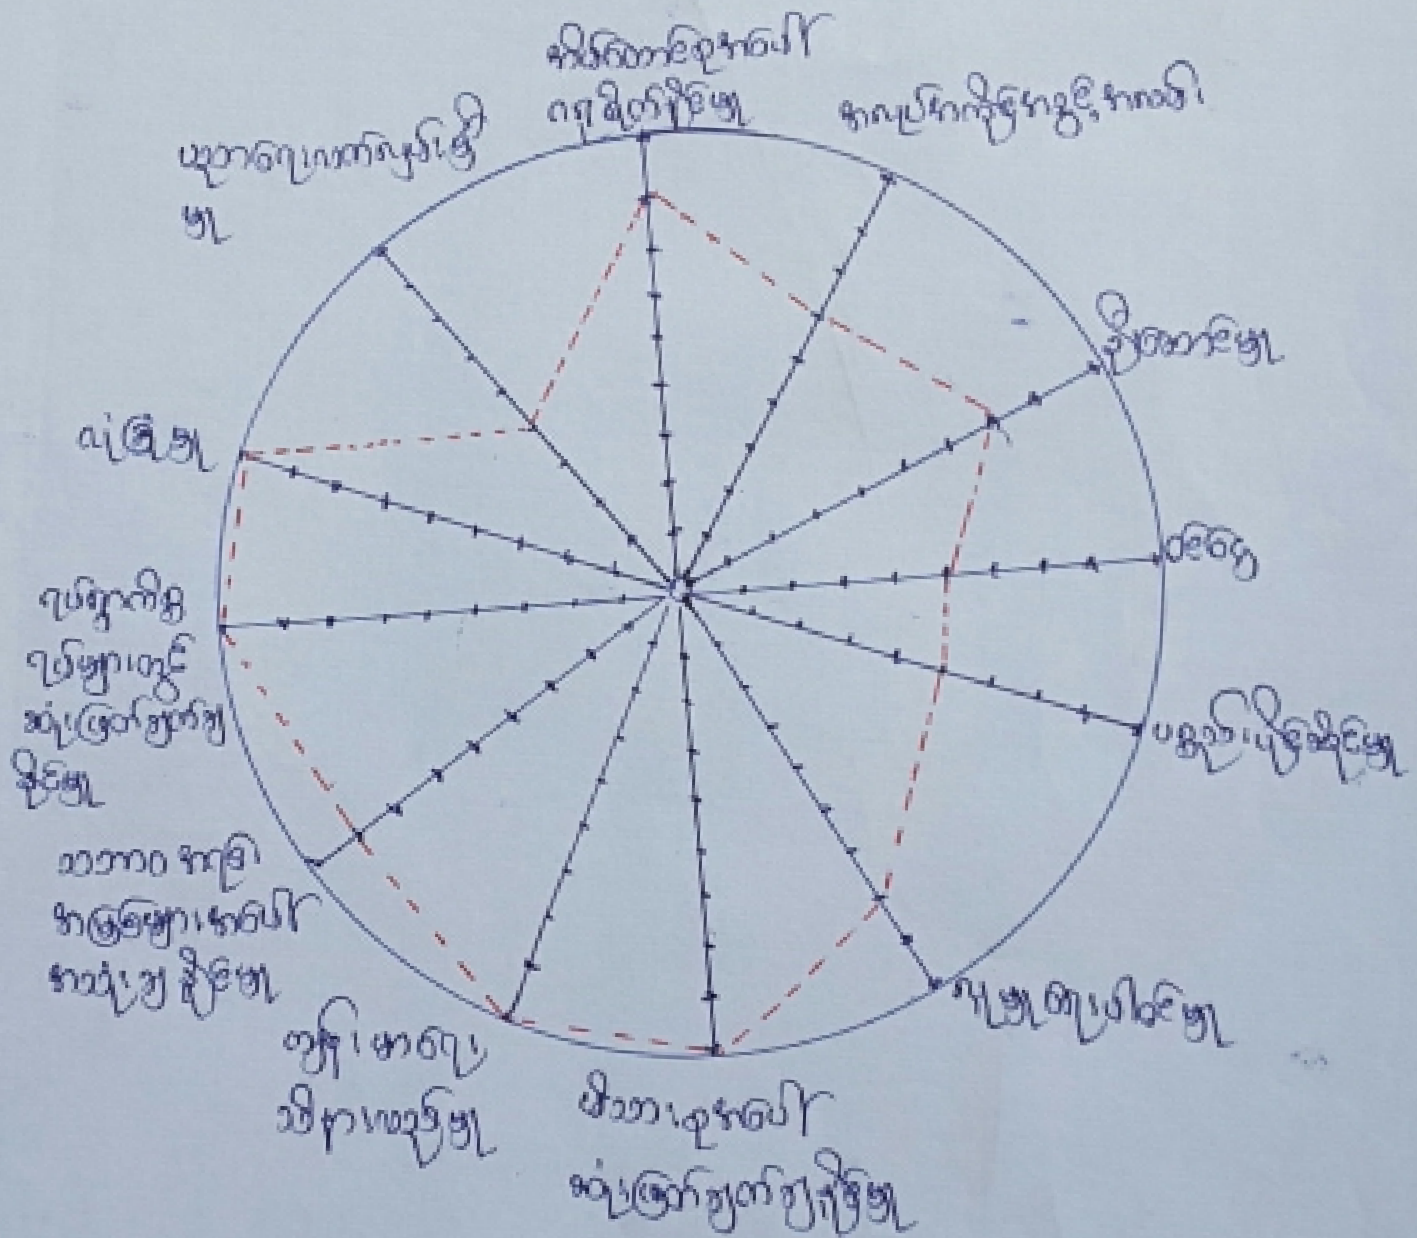 အိမ်ထောင်စုအပေါ်
ဂရုစိုက်နိုင်မှု
အလုပ်အကိုင်အခွင့်အလမ်း
ညီညွတ်မှု
ဝင်ငွေ
ပစ္စည်းပိုင်ဆိုင်မှု
လူမှုရေးပါဝင်မှု
မိသားစုအပေါ်
ဆုံးဖြတ်ချက်ချနိုင်မှု
ကျန်းမာရေး
သဘာဝ အရင်း
အမြစ်များအပေါ်
အသုံးချနိုင်မှု
ရပ်ရွာကိစ္စ
ရပ်များတွင်
ဆုံးဖြတ်ချက်ချ
နိုင်မှု
လုံခြုံမှု
မှု